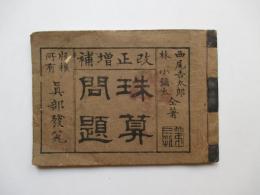 改正增補
珠算
問題
西尾吉太郎
林小彌太
仝著
版權
所有
眞部發兌